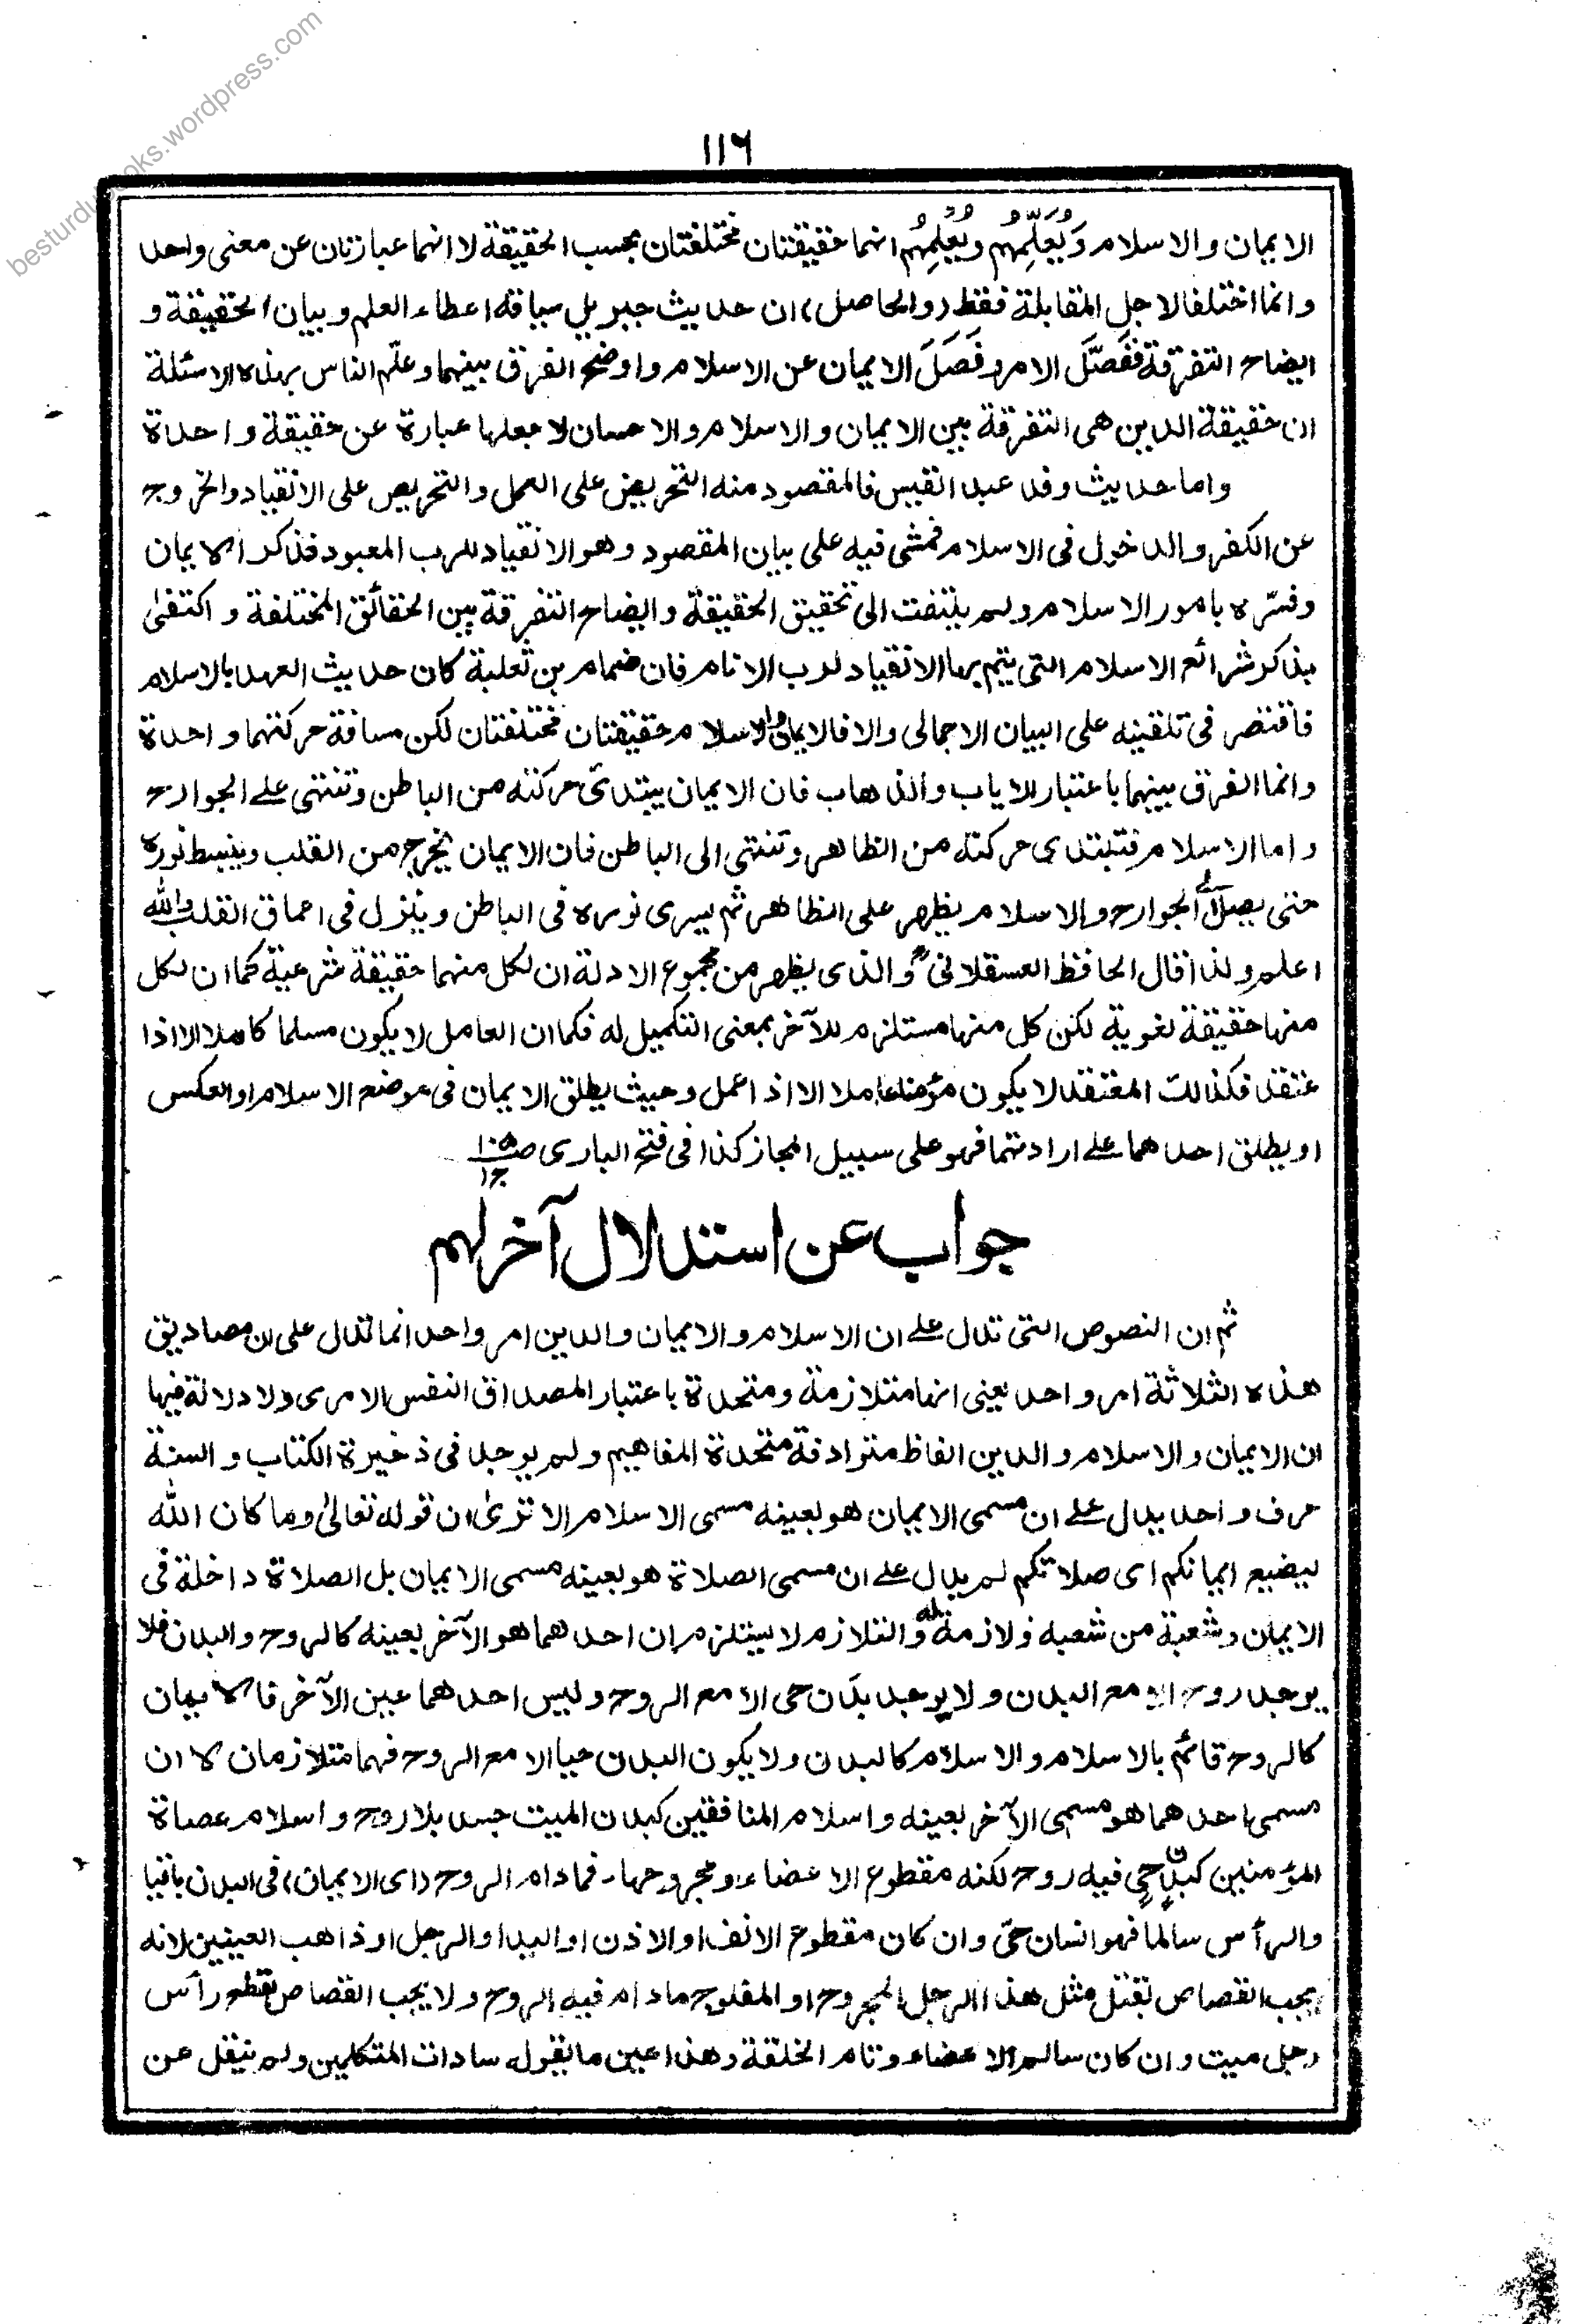 besturdubooks.wordpress.com
١١٦
الايمان والاسلام وَيُعَلِّمُهُم ويُعْلِمُهُم انهما حقيقتان مختلفتان بحسب الحقيقة لا انهما عبارتان عن معنى واحد
وانما اختلفا لاجل المقابلة فقط (والحاصل) ان حديث جبريل سياقه اعطاء العلم وبيان الحقيقة و
ايضاح التفرقة فَفَصَّلَ الامر وفَصَلَ الايمان عن الاسلام واوضح الفرق بينهما وعلّم الناس بهذه الاسئلة
ان حقيقة الدين هى التفرقة بين الايمان والاسلام والاحسان لا جعلها عبارة عن حقيقة واحدة
واما حديث وفد عبد القيس فالمقصود منه التحريض على العمل والتحريص على الانقياد والخروج
عن الكفر والدخول فى الاسلام فمشى فيه على بيان المقصود وهو الانقياد للرب المعبود فذكر الايمان
وفسّره بامور الاسلام ولم يلتفت الى تحقيق الحقيقة وايضاح التفرقة بين الحقائق المختلفة واكتفىٰ
بذكر شرائع الاسلام التى يتم بها الانقياد لرب الانام فان ضمام بن ثعلبة كان حديث العهد بالاسلام
فاقتصر فى تلقينه على البيان الاجمالى والا فالايمان والاسلام حقيقتان مختلفتان لكن مسافة حركتهما واحدة
وانما الفرق بينهما باعتبار الاياب والذهاب فان الايمان يبتدئ حركته من الباطن وتنتهى علے الجوارح
واما الاسلام فتبتدى حركته من الظاهر وتنتهى الى الباطن فان الايمان يخرج من القلب وينبسط نوره
حتى يصل الى الجوارح والاسلام يظهر على الظاهر ثم يسرى نوره فى الباطن وينزل فى اعماق القلب والله
اعلم ولذا قال الحافظ العسقلانى والذى يظهر من مجموع الادلة ان لكل منهما حقيقة شرعية كما ان لكل
منهما حقيقة لغوية لكن كل منهما مستلزم للآخر بمعنى التكميل له فكما ان العامل لا يكون مسلما كاملا الا اذا
عتقد فكذالك المعتقد لا يكون مؤمنا عاملا الا اذ اعمل وحيث يطلق الايمان فى موضع الاسلام او العكس
او يطلق احدهما علے ارادتهما فهو على سبيل المجاز كذا فى فتح البارى ص١٠٥ ج١
جواب عن استدلال آخر لهم
ثم ان النصوص التى تدل علے ان الاسلام والايمان والدين امر واحد انما تدل على ان مصاديق
هذه الثلاثة امر واحد يعنى انها متلازمة ومتحدة باعتبار المصداق النفس الامرى ولا دلالة فيها
ان الايمان والاسلام والدين الفاظ مترادفة متحدة المفاهيم ولم يوجد فى ذخيرة الكتاب والسنة
حرف واحد يدل علے ان مسمى الايمان هو بعينه مسمى الاسلام الا ترىٰ ان قوله تعالىٰ وما كان الله
ليضيع ايمانكم اى صلاتكم لم يدل علے ان مسمى الصلاة هو بعينه مسمى الايمان بل الصلاة داخلة فى
الايمان وشعبة من شعبه ولازمة له والتلازم لا يستلزم ان احدهما هو الآخر بعينه كالروح والبدن فلا
يوجد روح الا مع البدن ولا يوجد بدَن حى الا مع الروح وليس احدهما عين الآخر فالايمان
كالروح قائم بالاسلام والاسلام كالبدن ولا يكون البدن حيا الا مع الروح فهما متلازمان لا ان
مسمى احدهما هو مسمى الآخر بعينه واسلام المنافقين كبدن الميت جسد بلا روح واسلام عصاة
المؤمنين كبدنٍ حىٍ فيه روح لكنه مقطوع الاعضاء ومجروحها، فمادام الروح (اى الايمان) فى البدن باقيا
والرأس سالما فهو انسان حىّ وان كان مقطوع الانف او الاذن او اليد او الرجل او ذاهب العينين لانه
يجب القصاص بقتل مثل هذا الرجل المجروح او المفلوج مادام فيه الروح ولا يجب القصاص بقطع رأس
رجل ميت وان كان سالم الاعضاء وتام الخلقة وهذا عين ما يقوله سادات المتكلمين ولم ينقل عن